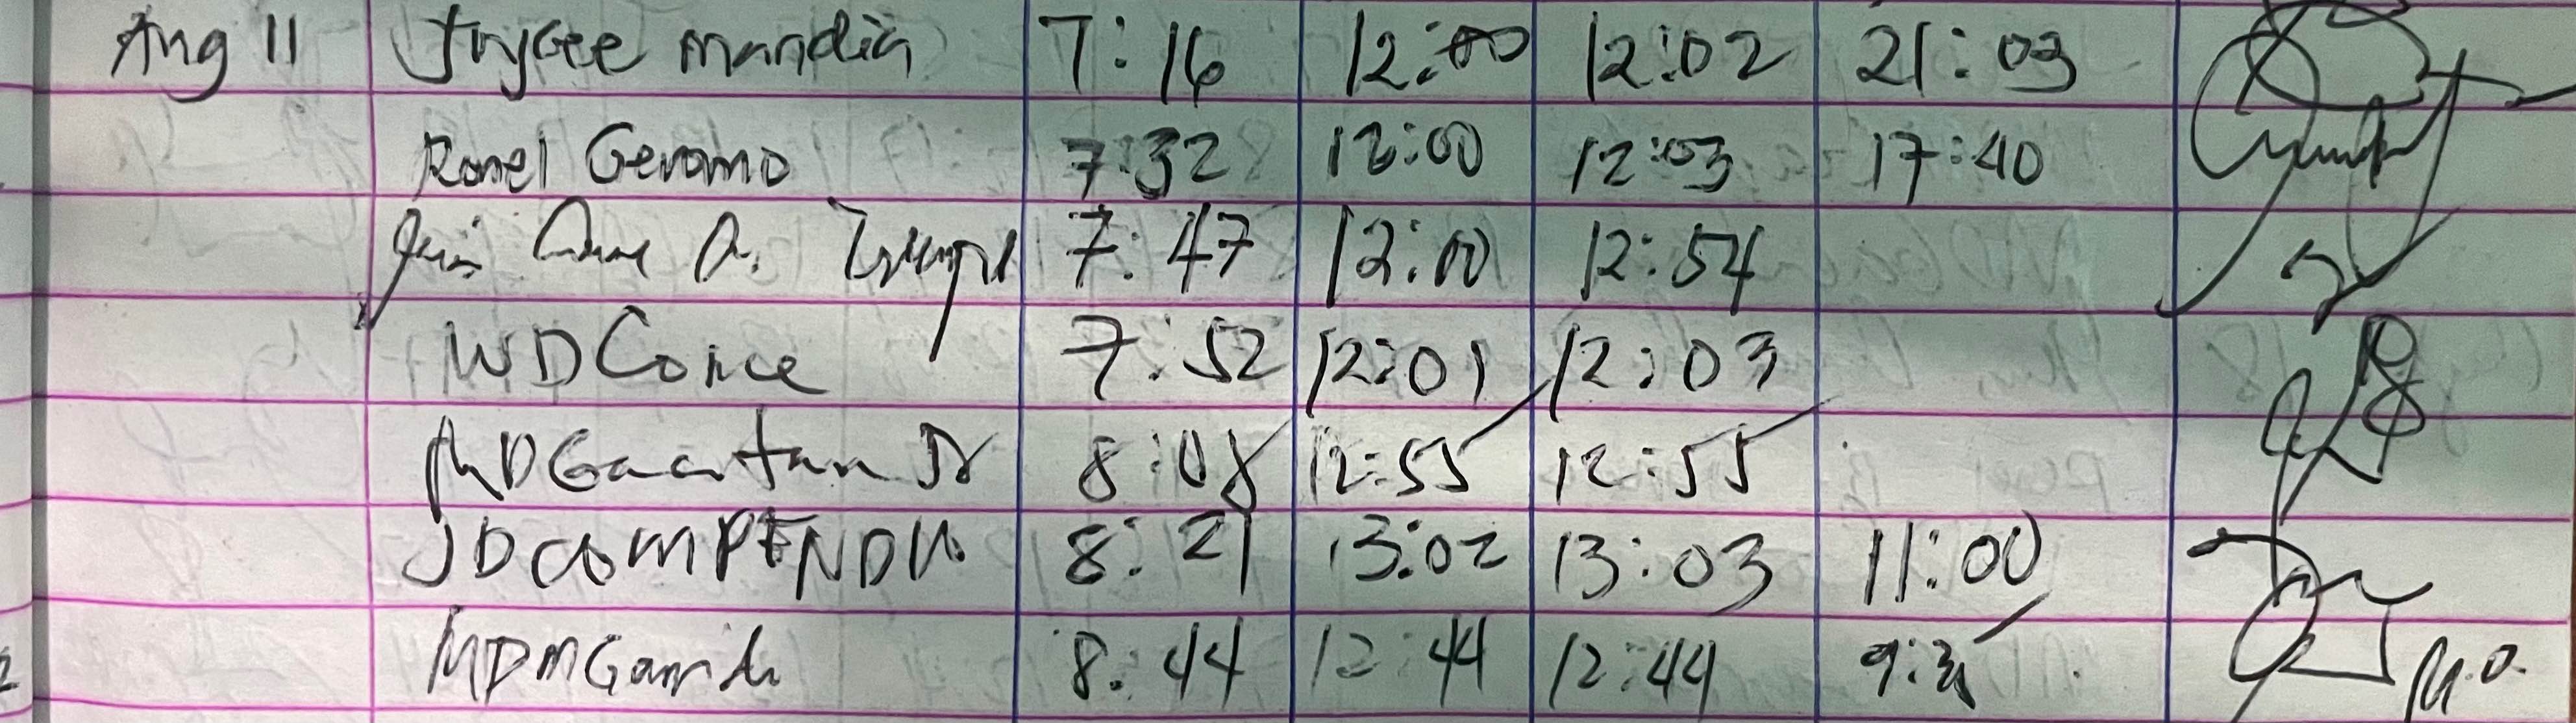 Aug 11 Jaycee Mandia 7:16 12:00 12:02 21:03
Ronel Geromo 7:32 12:00 12:03 17:40
7:47 12:00 12:54
WD Conce 7:52 12:01 12:03
MD Gaantan Jr 8:08 12:55 12:55
JD COMPENDIO 8:21 13:02 13:03 11:00
MDM 8:44 12:44 12:44 M.O.